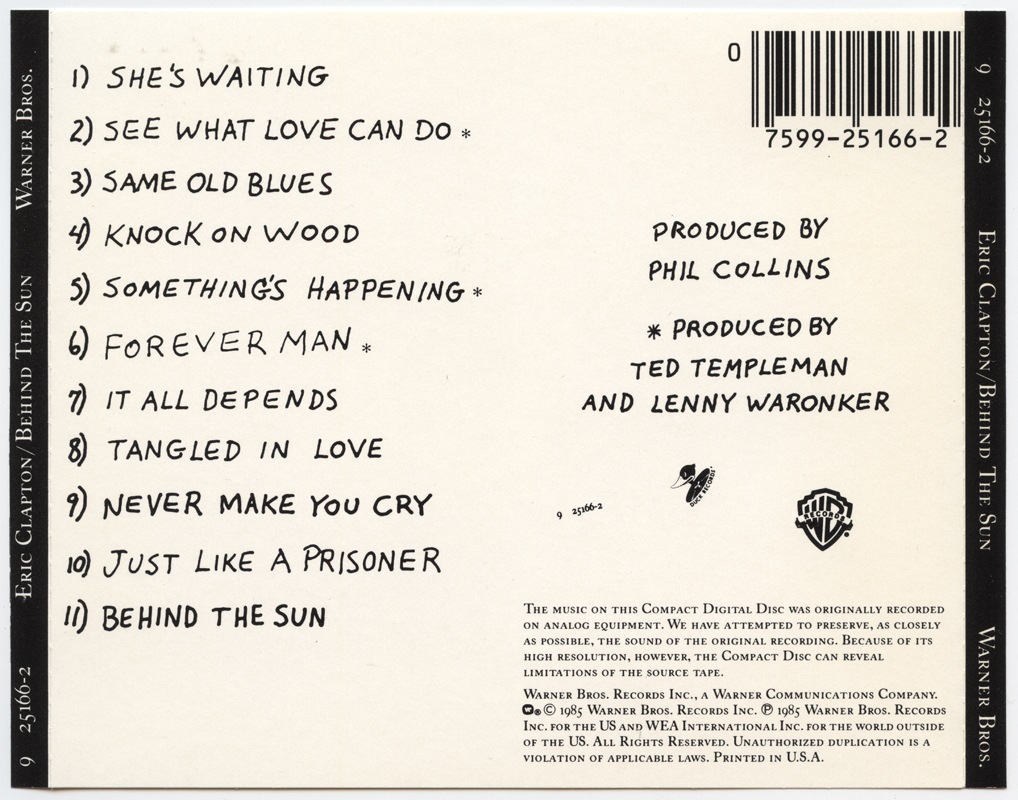 9 25166-2 Eric Clapton/Behind The Sun Warner Bros.
1) SHE'S WAITING
2) SEE WHAT LOVE CAN DO *
3) SAME OLD BLUES
4) KNOCK ON WOOD
5) SOMETHING'S HAPPENING *
6) FOREVER MAN *
7) IT ALL DEPENDS
8) TANGLED IN LOVE
9) NEVER MAKE YOU CRY
10) JUST LIKE A PRISONER
11) BEHIND THE SUN
0
7599-25166-2
PRODUCED BY
PHIL COLLINS
* PRODUCED BY
TED TEMPLEMAN
AND LENNY WARONKER
9 25166-2
DUCK RECORDS
WB RECORDS ®
The music on this Compact Digital Disc was originally recorded
on analog equipment. We have attempted to preserve, as closely
as possible, the sound of the original recording. Because of its
high resolution, however, the Compact Disc can reveal
limitations of the source tape.
Warner Bros. Records Inc., a Warner Communications Company.
W ® © 1985 Warner Bros. Records Inc. ℗ 1985 Warner Bros. Records
Inc. for the US and WEA International Inc. for the world outside
of the US. All Rights Reserved. Unauthorized duplication is a
violation of applicable laws. Printed in U.S.A.
9 25166-2 Eric Clapton/Behind The Sun Warner Bros.